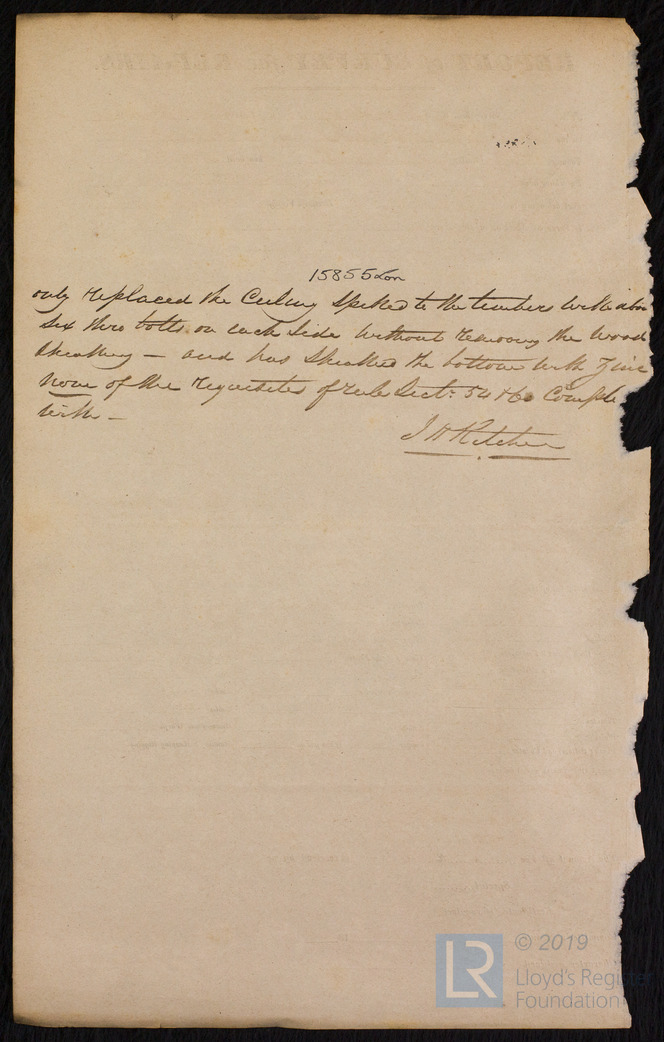 REPORT of SURVEY for REPAIRS.
15855 Lon
only replaced the Ceiling Spiked to the timbers with abou
six thro bolts on each side without removing the Wood
Sheathing — and has Sheathed the bottom with Zinc
None of the requisites of rule Sect: 54 & 60 Comple
with —
J H Kitchen
© 2019
Lloyd's Register
Foundation
LR